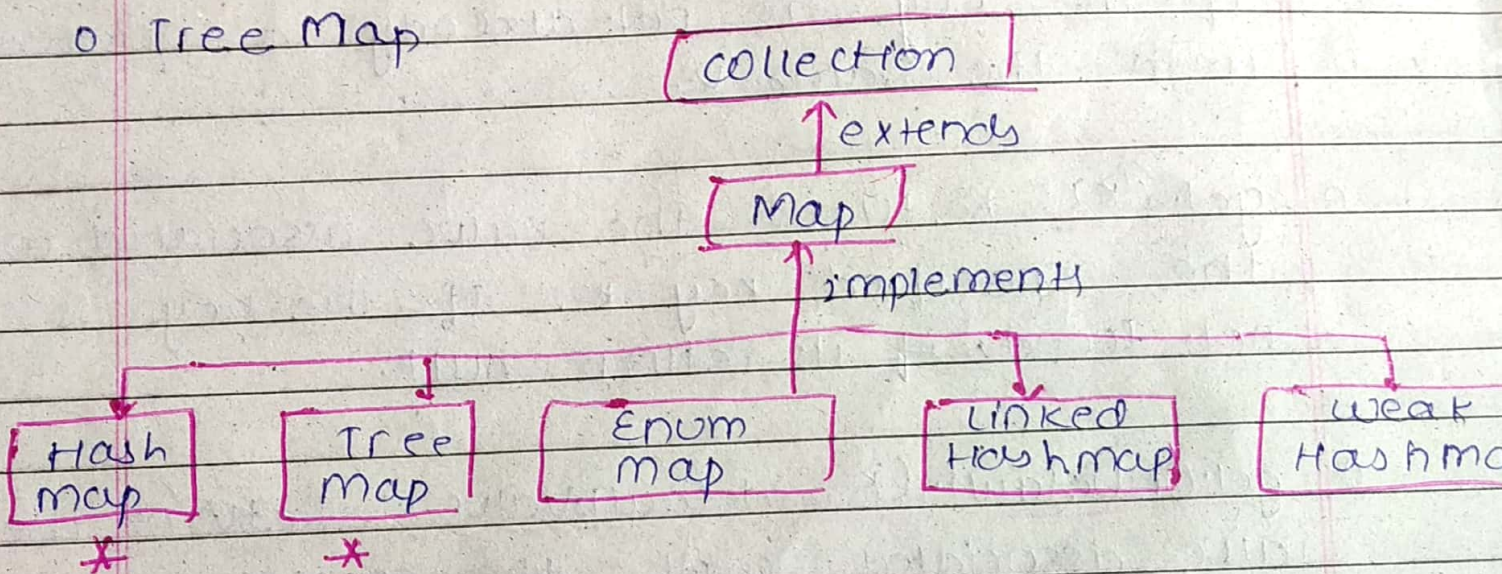 o Tree Map
collection
extends
Map
implements
Hash
map
Tree
map
Enum
map
Linked
Hashmap
Weak
Hashma
*
*